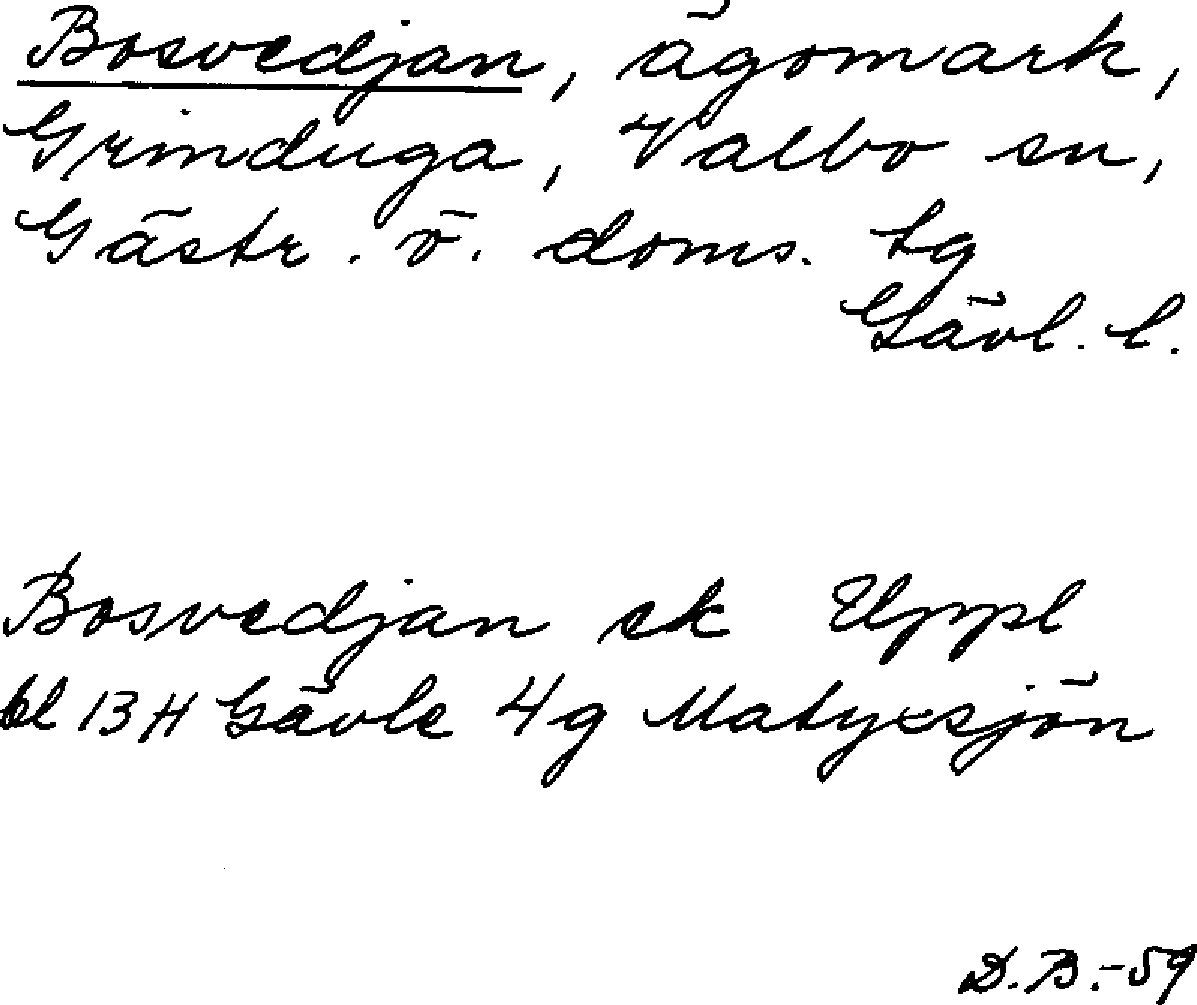 Bosvedjan, ägomark,
Grinduga, Valbo sn,
Gästr. ö. doms. tg
Gävl. l.
Bosvedjan ek Uppl
bl 13 H Gävle 4 g Matyxsjön
D.B.-59